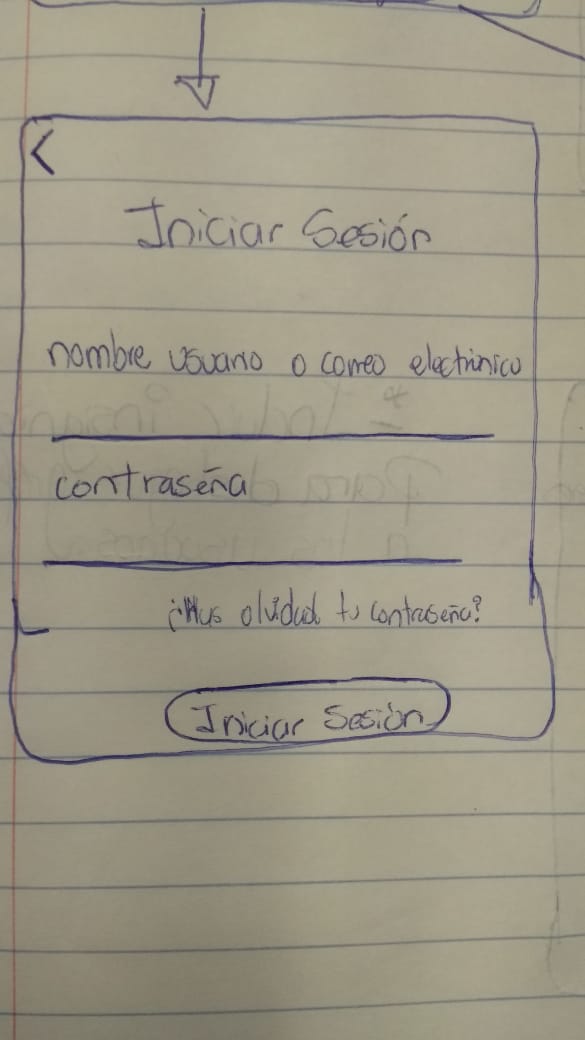 <
Iniciar Sesión
nombre usuario o correo electrónico
contraseña
¿Has olvidad tu contraseña?
Iniciar Sesión